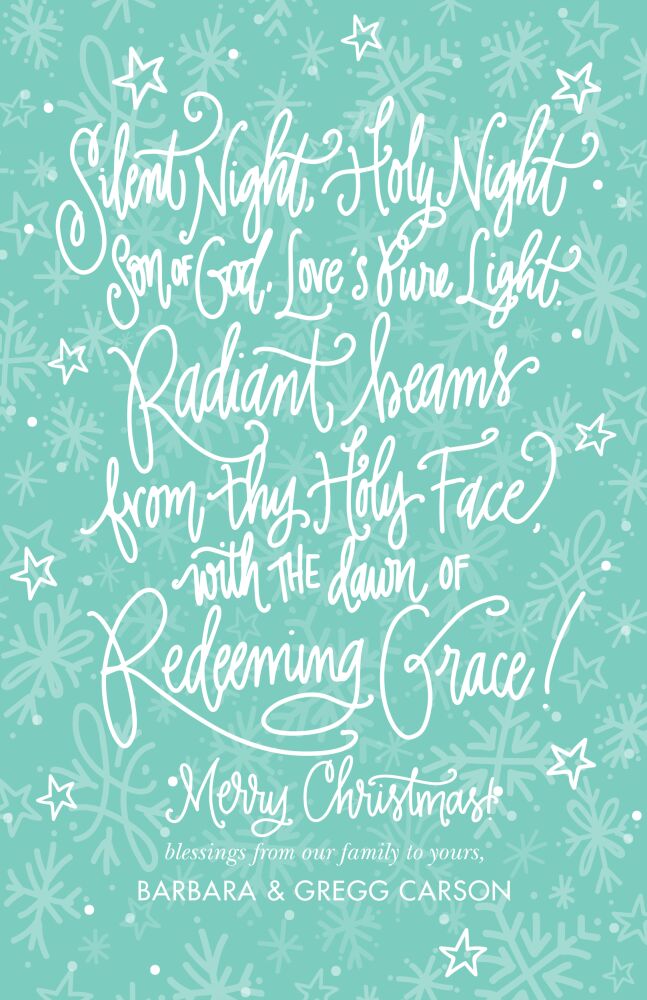 Silent Night, Holy Night
Son of God, Love's Pure Light.
Radiant beams
from thy Holy Face,
with THE dawn OF
Redeeming Grace!
Merry Christmas!
blessings from our family to yours,
BARBARA & GREGG CARSON